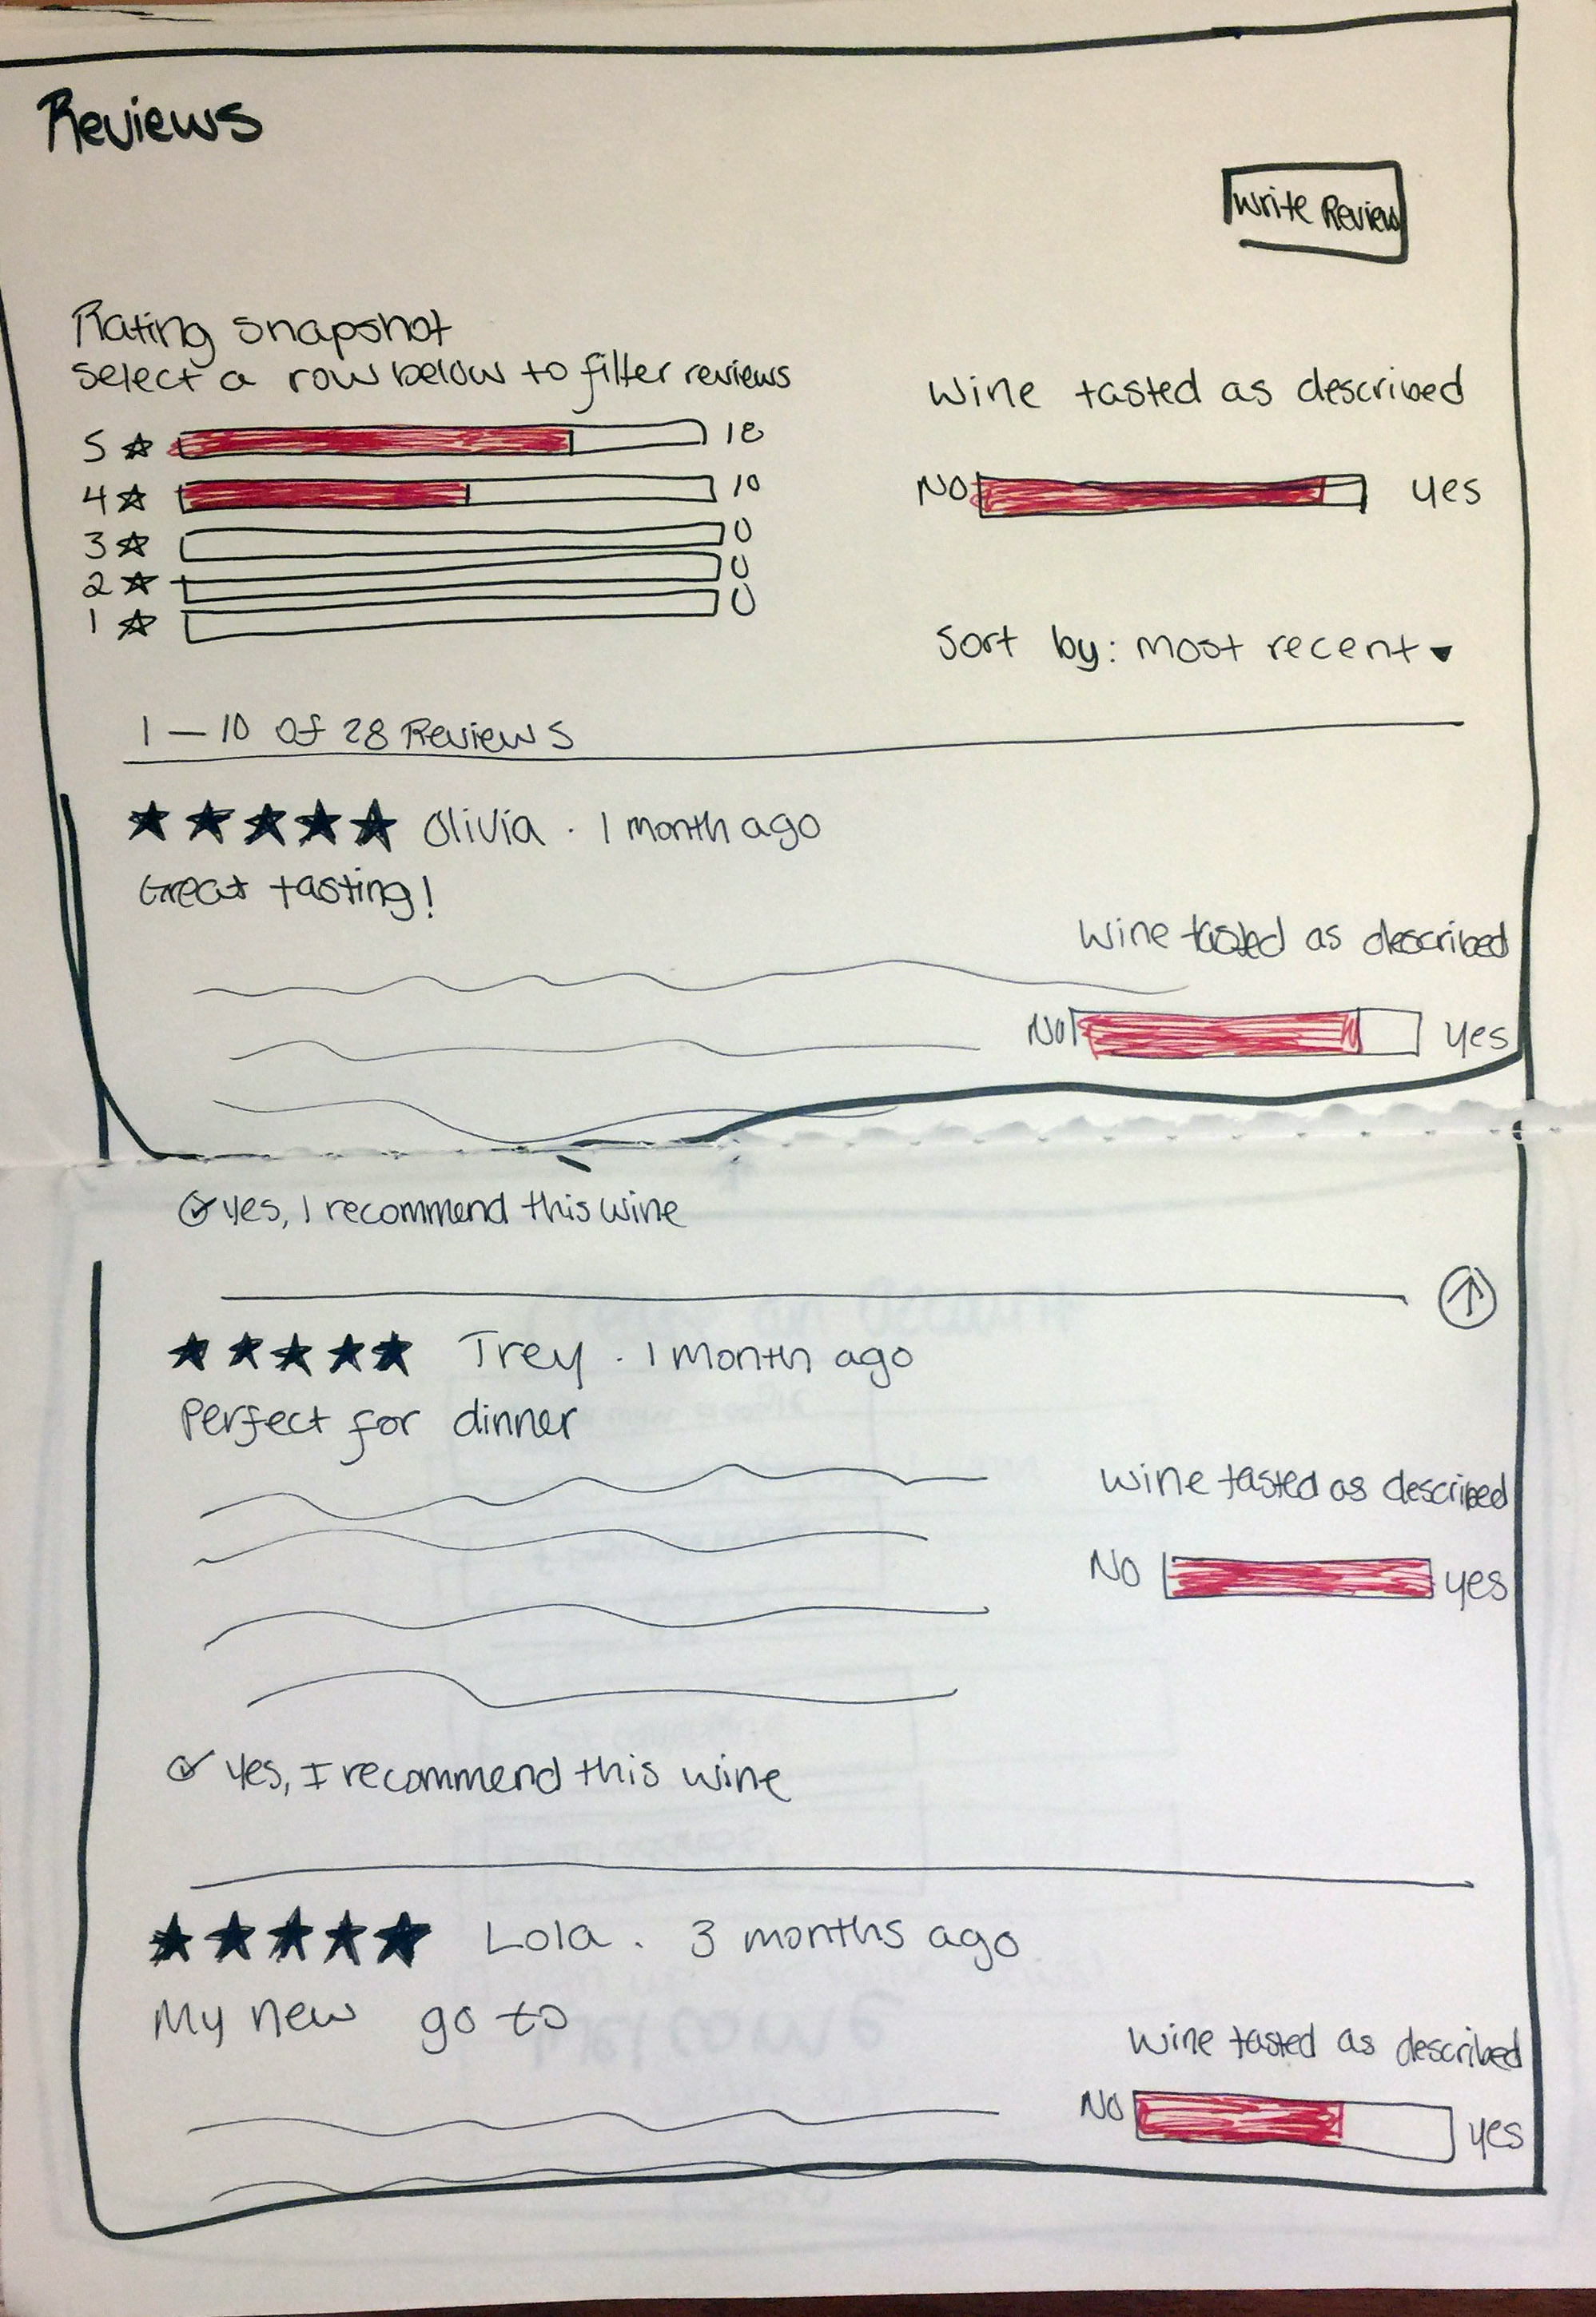 Reviews
Write Review
Rating snapshot
select a row below to filter reviews
5 ★ 18
4 ★ 10
3 ★ 0
2 ★ 0
1 ★ 0
Wine tasted as described
No yes
Sort by: most recent ▾
1 – 10 of 28 Reviews
★★★★★ Olivia · 1 month ago
Great tasting!
Wine tasted as described
No yes
yes, I recommend this wine
★★★★★ Trey · 1 month ago
Perfect for dinner
Wine tasted as described
No yes
Yes, I recommend this wine
★★★★★ Lola · 3 months ago
My new go to
Wine tasted as described
No yes